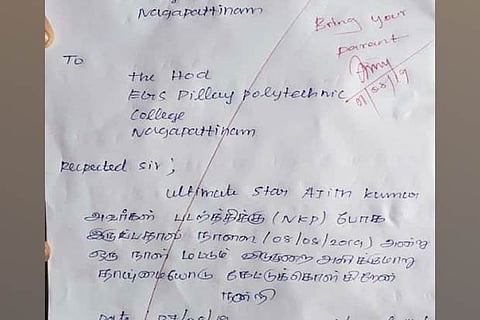 Nagapattinam
Bring your
parant
01/08/19
To
the Hod
EGS Pillay polytechnic
College
Nagapattinam
Respected Sir;
Ultimate Star Ajith Kumar
அவர்கள் படத்திக்கு (NKP) போக
இருப்பதால் நாளை (08/08/2019) அன்று
ஒரு நாள் மட்டும் விடுமுறை அளிக்குமாறு
தாழ்மையோடு கேட்டுக்கொள்கிறேன்
நன்றி